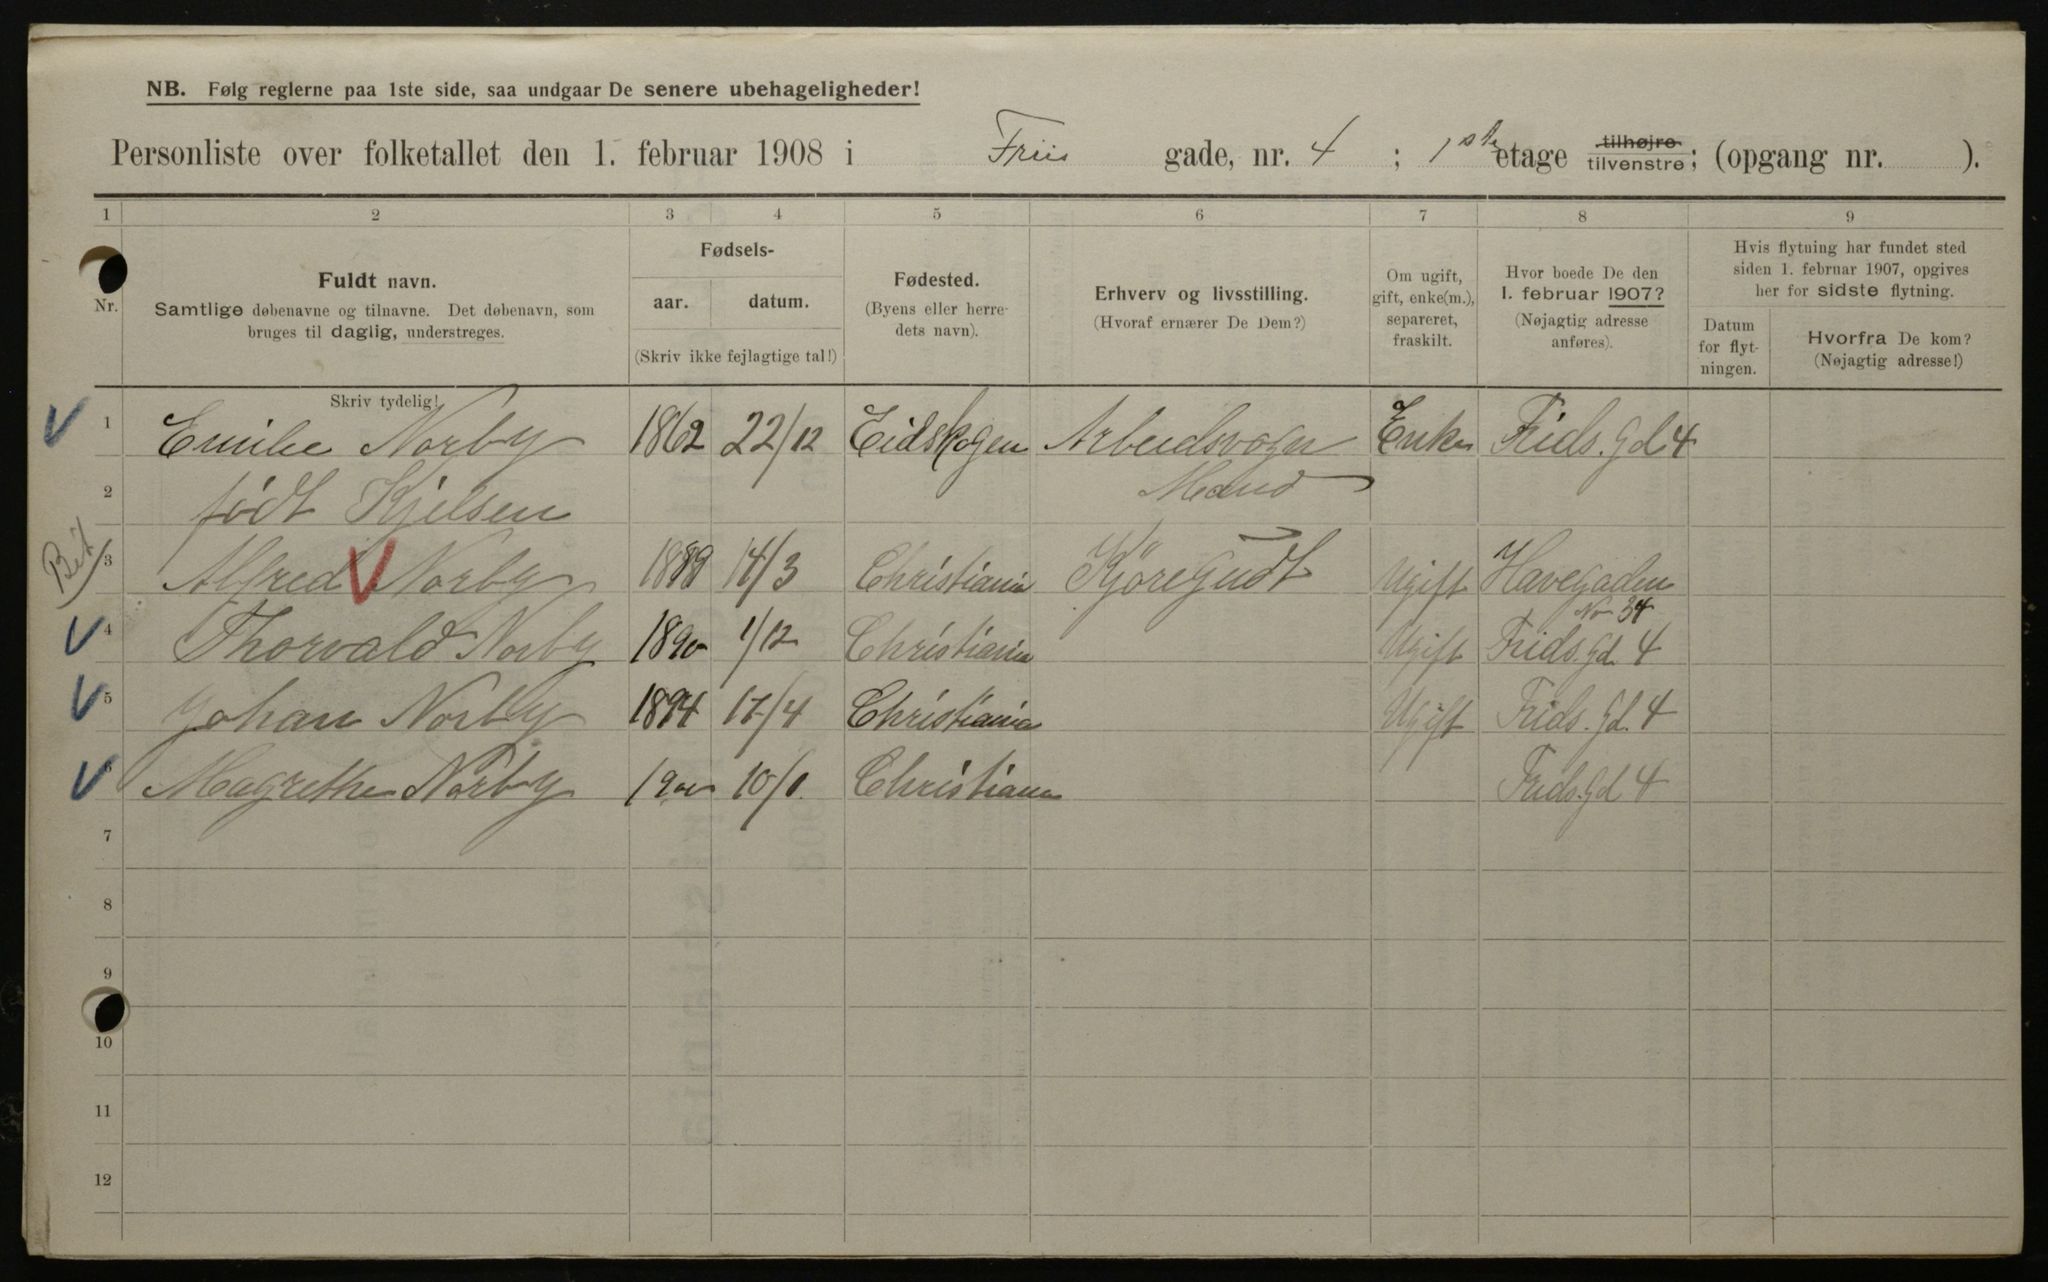 NB. Følg reglerne paa 1ste side, saa undgaar De senere ubehageligheder!
Personliste over folketallet den 1. februar 1908 i Friis gade, nr. 4 ; 1ste etage tilhøjre tilvenstre; (opgang nr. ).
1 2 3 4 5 6 7 8 9
Nr.
Fuldt navn.
Samtlige døbenavne og tilnavne. Det døbenavn, som
bruges til daglig, understreges.
Skriv tydelig!
Fødsels-
aar. datum.
(Skriv ikke fejlagtige tal!)
Fødested.
(Byens eller herre-
dets navn).
Erhverv og livsstilling.
(Hvoraf ernærer De Dem?)
Om ugift,
gift, enke(m.),
separeret,
fraskilt.
Hvor boede De den
1. februar 1907?
(Nøjagtig adresse
anføres).
Hvis flytning har fundet sted
siden 1. februar 1907, opgives
her for sidste flytning.
Datum
for flyt-
ningen.
Hvorfra De kom?
(Nøjagtig adresse!)
1 Emilie Norby 1862 22/12 Eidskogen Arbeidsvogn Enke Frids. Gd 4
2 født Kjelsen Mand
Bet
3 Alfred Norby 14/3 Christiania Kjøregudt Ugift Havegaden
No 34
4 Thorvald Norby 1890 1/12 Christiania Ugift Frids. Gd. 4
5 Johan Norby 1894 17/4 Christiania Ugift Frids. Gd. 4
6 Magrethe Norby Christiania Frids. Gd 4
7
8
9
10
11
12